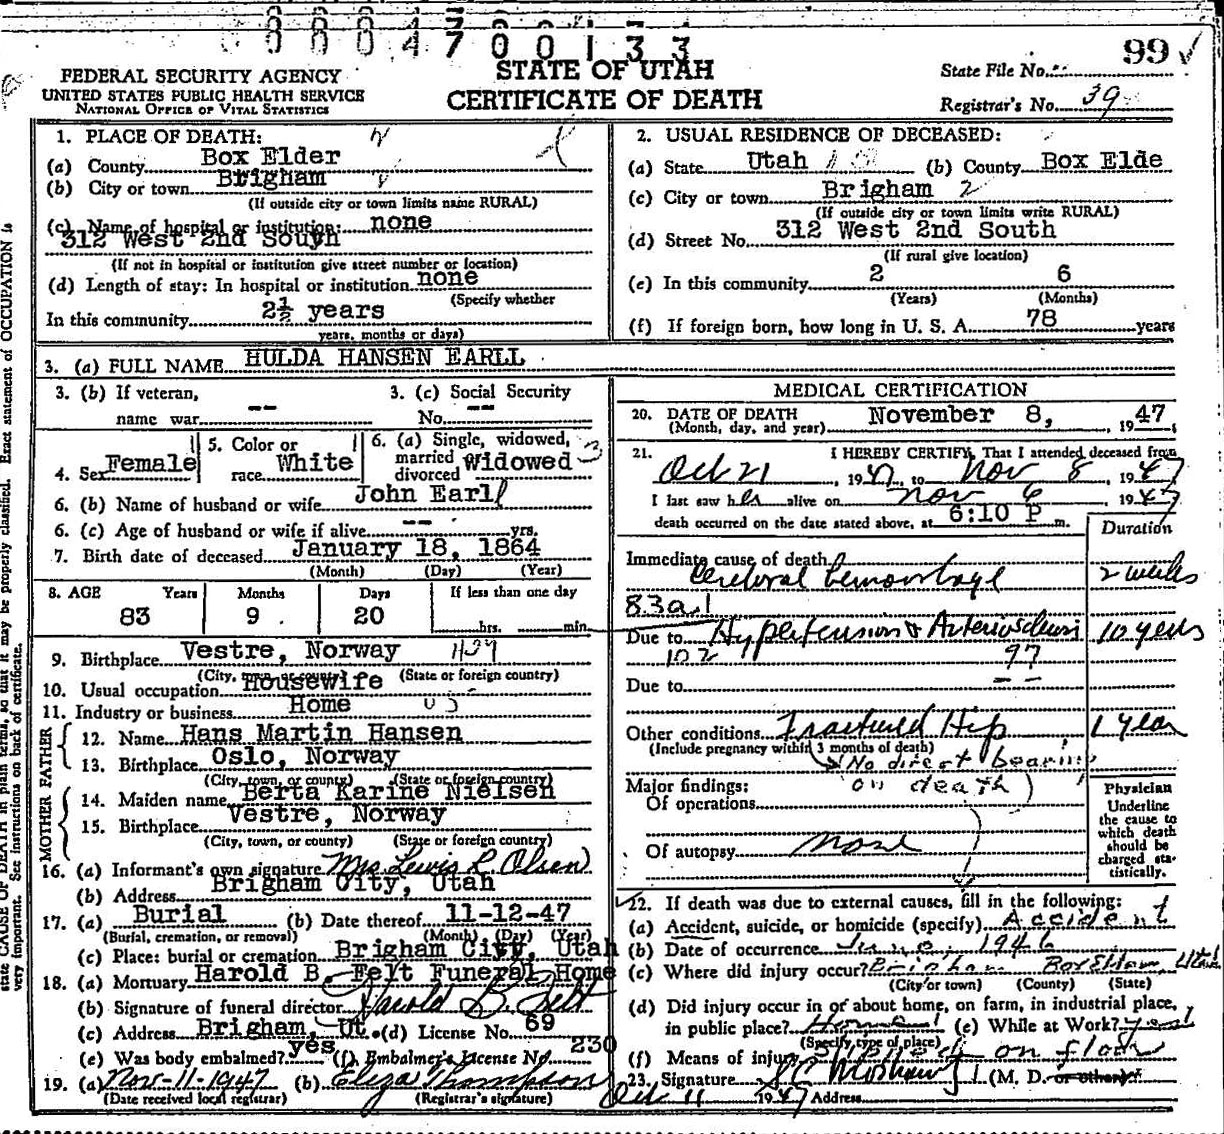 0 0 0 4 7 0 0 1 3 3
99
FEDERAL SECURITY AGENCY
UNITED STATES PUBLIC HEALTH SERVICE
NATIONAL OFFICE OF VITAL STATISTICS
STATE OF UTAH
CERTIFICATE OF DEATH
State File No.
Registrar's No. 39
1. PLACE OF DEATH:
(a) County Box Elder
(b) City or town Brigham
(If outside city or town limits name RURAL)
(c) Name of hospital or institution: none
312 West 2nd South
(If not in hospital or institution give street number or location)
(d) Length of stay: In hospital or institution none
(Specify whether
In this community 2½ years
years, months or days)
2. USUAL RESIDENCE OF DECEASED:
(a) State Utah (b) County Box Elde
(c) City or town Brigham 2
(If outside city or town limits write RURAL)
(d) Street No. 312 West 2nd South
(If rural give location)
(e) In this community 2 6
(Years) (Months)
(f) If foreign born, how long in U. S. A. 78 years
3. (a) FULL NAME HULDA HANSEN EARLL
3. (b) If veteran,
name war --
3. (c) Social Security
No. --
4. Sex Female
5. Color or
race White
6. (a) Single, widowed,
married
divorced Widowed 3
6. (b) Name of husband or wife John Earll
6. (c) Age of husband or wife if alive -- yrs.
7. Birth date of deceased January 18, 1864
(Month) (Day) (Year)
8. AGE Years Months Days If less than one day
83 9 20 hrs. min.
9. Birthplace Vestre, Norway
(City, town, or county) (State or foreign country)
10. Usual occupation Housewife
11. Industry or business Home
FATHER
12. Name Hans Martin Hansen
13. Birthplace Oslo, Norway
(City, town, or county) (State or foreign country)
MOTHER
14. Maiden name Berta Karine Nielsen
15. Birthplace Vestre, Norway
(City, town, or county) (State or foreign country)
16. (a) Informant's own signature Mrs Lewis L. Olsen
(b) Address Brigham City, Utah
17. (a) Burial (b) Date thereof 11-12-47
(Burial, cremation, or removal) (Month) (Day) (Year)
(c) Place: burial or cremation Brigham City, Utah
18. (a) Mortuary Harold B. Felt Funeral Home
(b) Signature of funeral director Harold B. Felt
(c) Address Brigham, Ut. (d) License No. 69
(e) Was body embalmed? yes (f) Embalmer's License No. 230
19. (a) Nov-11-1947 (b) Eliza Thompson
(Date received local registrar) (Registrar's signature)
MEDICAL CERTIFICATION
20. DATE OF DEATH
(Month, day, and year) November 8, 1947
21. I HEREBY CERTIFY, That I attended deceased from
Oct 21, 1947, to Nov 8, 1947
I last saw her alive on Nov 6 1947
death occurred on the date stated above, at 6:10 P m.
Duration
Immediate cause of death
Cerebral hemorrhage 2 weeks
83a1
Due to Hypertension & Arteriosclerosis 10 years
102 97
Due to --
Other conditions Fractured Hip 1 year
(Include pregnancy within 3 months of death)
No direct bearing
on death)
Major findings:
Of operations
Of autopsy none
Physician
Underline
the cause to
which death
should be
charged sta-
tistically.
22. If death was due to external causes, fill in the following:
(a) Accident, suicide, or homicide (specify) Accident
(b) Date of occurrence June, 1946
(c) Where did injury occur? Brigham Box Elder, Utah
(City or town) (County) (State)
(d) Did injury occur in or about home, on farm, in industrial place,
in public place? Home (e) While at Work? yes
(Specify type of place)
(f) Means of injury Slipped on floor
23. Signature (M. D. or other)
11 1947 Address
state CAUSE OF DEATH in plain terms, so that it may be properly classified. Exact statement of OCCUPATION is
very important. See instructions on back of certificate.